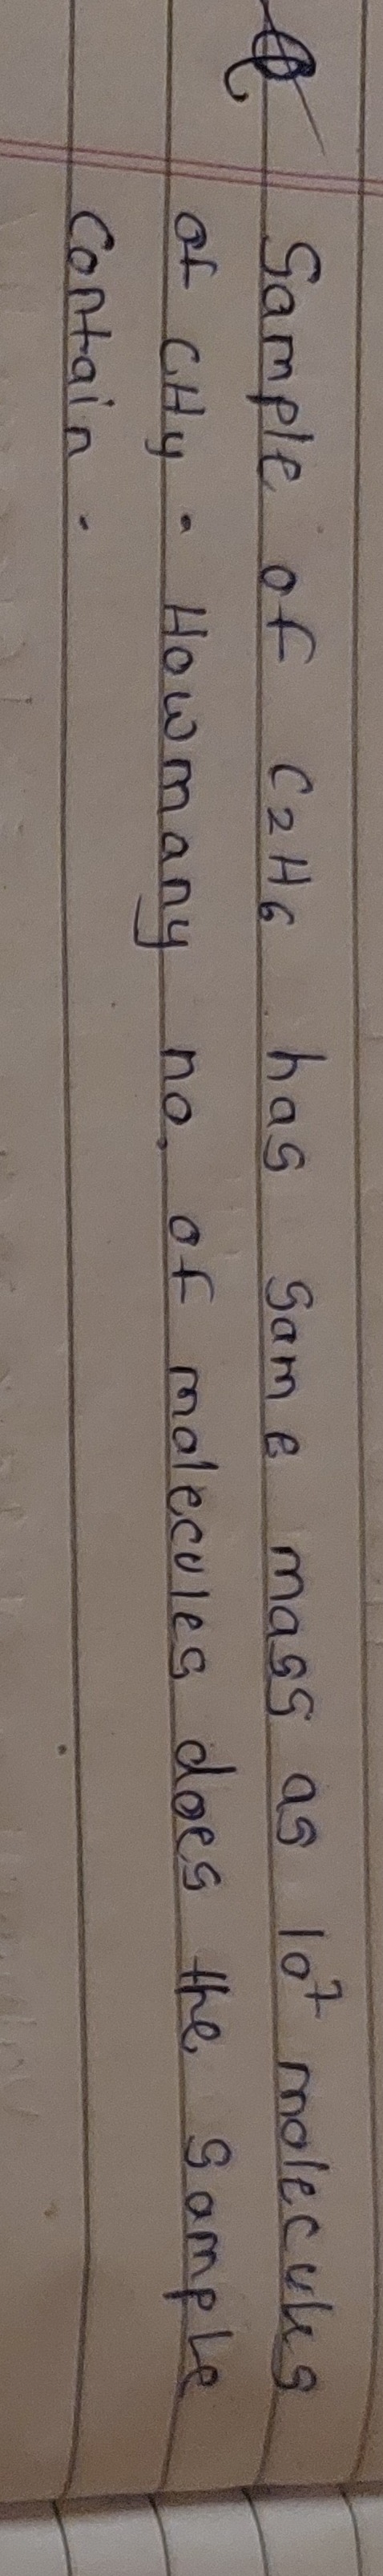 Q Sample of C2H6 has same mass as 10^7 molecules
of CH4. How many no. of molecules does the sample
contain.